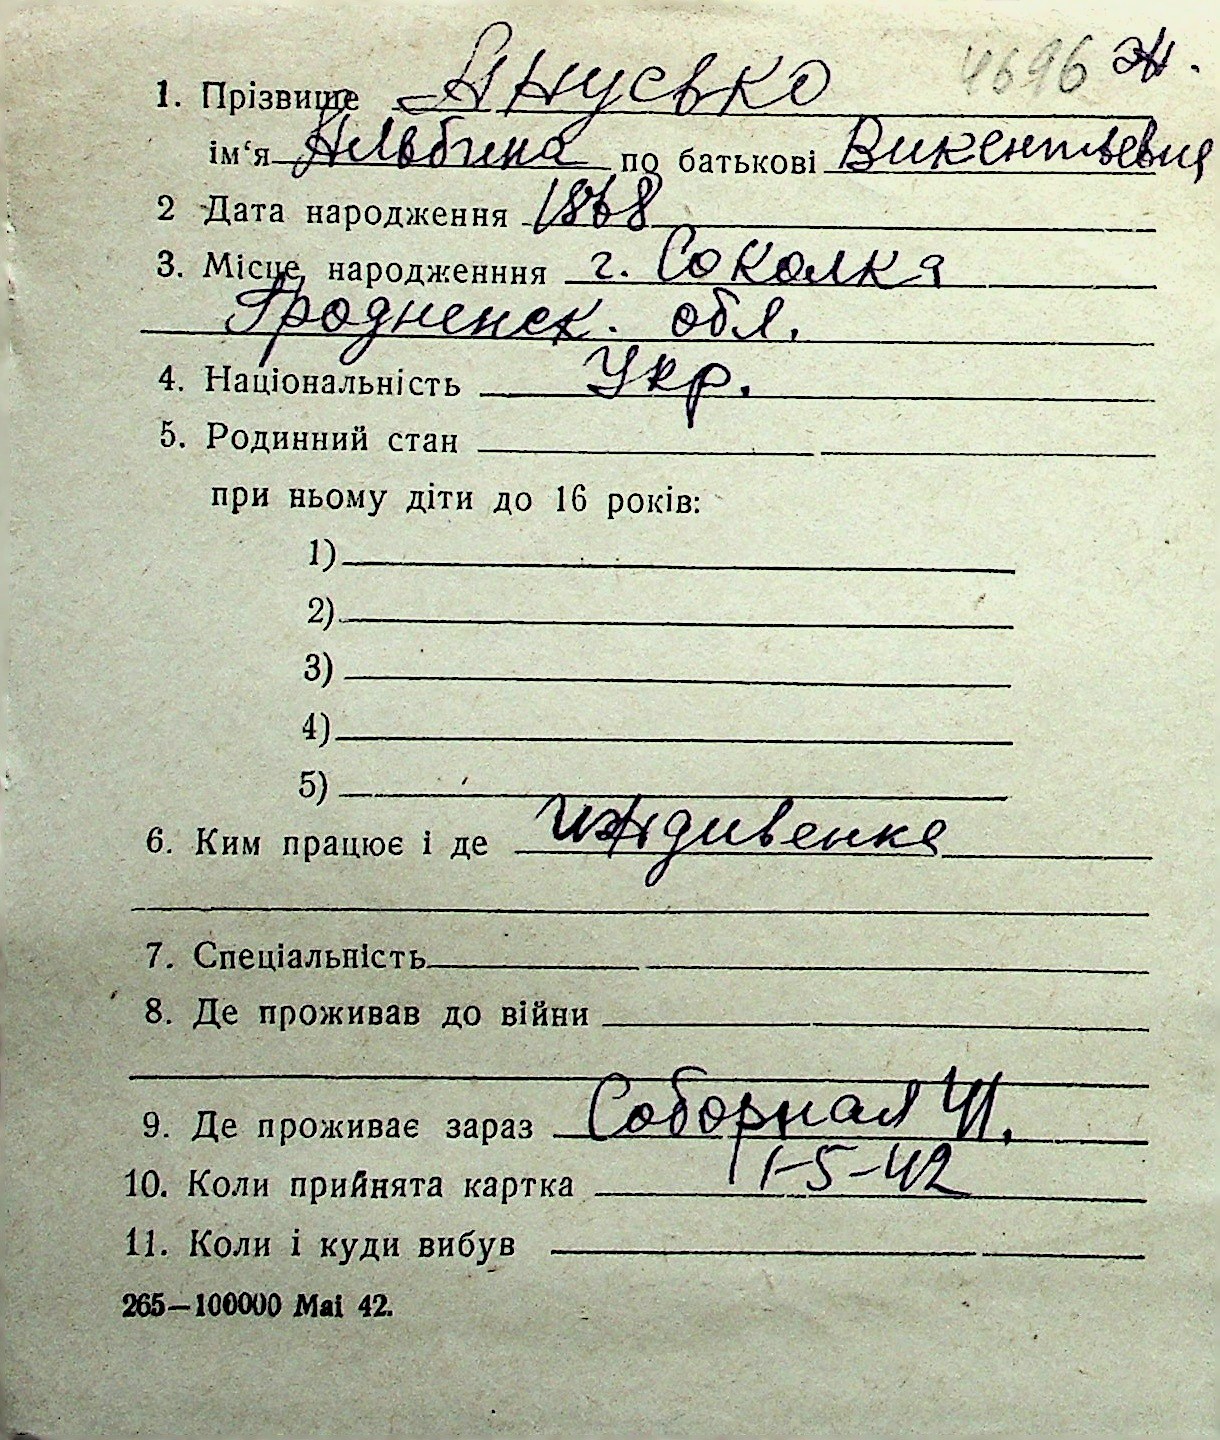 4696 Ж.
1. Прізвище Янусько
ім‘я Альбина по батькові Викентьевна
2 Дата народження 1868
3. Місце народженння г. Соколка
Гродненск. обл.
4. Національність Укр.
5. Родинний стан
при ньому діти до 16 років:
1)
2)
3)
4)
5)
6. Ким працює і де иждивенка
7. Спеціальність
8. Де проживав до війни
9. Де проживає зараз Соборная 41.
10. Коли прийнята картка 1-5-42
11. Коли і куди вибув
265—100000 Mai 42.